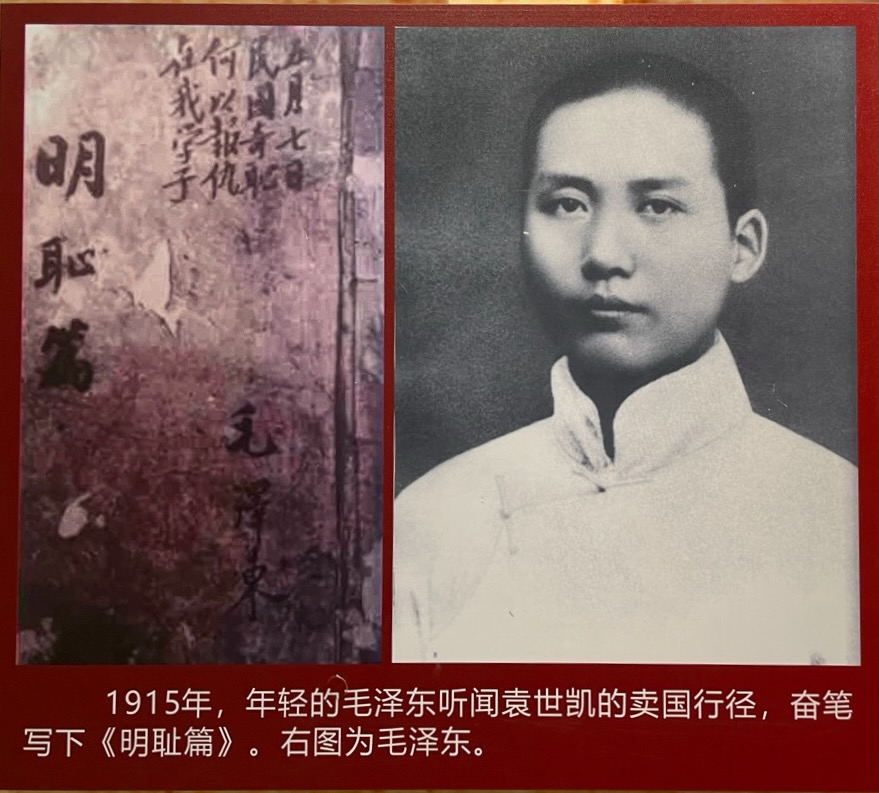 五月七日
民国奇耻
何以报仇
在我学子
明耻篇
毛澤東
1915年，年轻的毛泽东听闻袁世凯的卖国行径，奋笔
写下《明耻篇》。右图为毛泽东。